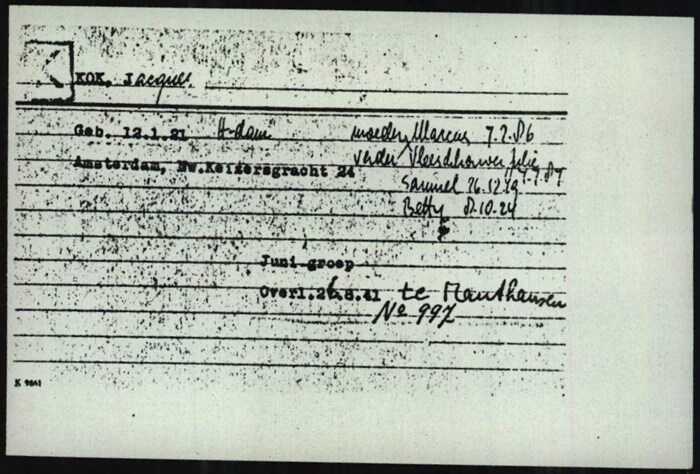 KOK, Jacques
Geb. 12.1.21 A-dam moeder Marcus 7.2.86
Amsterdam, Nw.Keizersgracht 24 vader Vleeschhouwer, Julie 7.7.87
Samuel 26.12.19
Betty 8.10.24
Juni-groep
Overl.26.8.41 te Mauthausen
No 997
K 9861